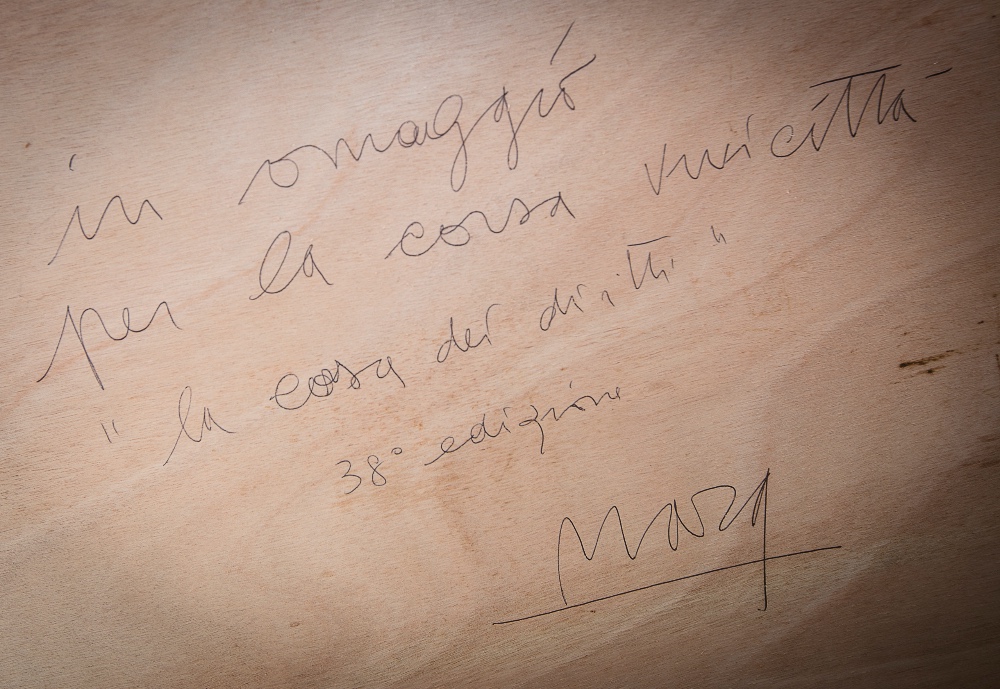 in omaggio
per la corsa vivicittà
"la corsa dei diritti"
38° edizione